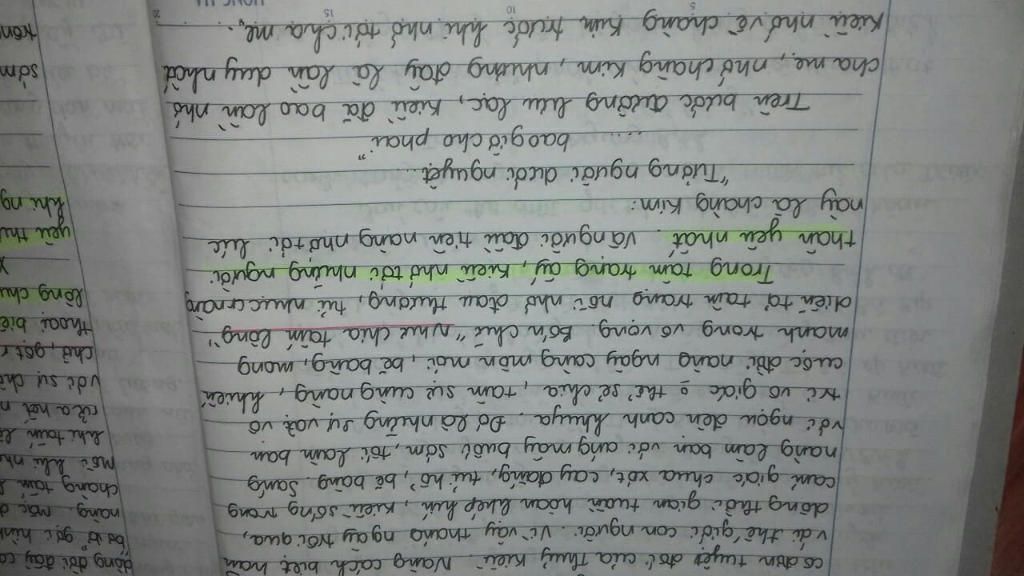 cô đơn tuyệt đối của Thúy Kiều. Nàng cách biệt hẳn
với thế giới con người. Vì vậy tháng ngày trôi qua,
dòng thời gian tuần hoàn khép kín, Kiều sống trong
cảm giác chua xót, cay đắng, tủi hổ, bẽ bàng. Sáng
nàng làm bạn với áng mây buổi sớm, tối làm bạn
với ngọn đèn canh khuya. Đó là những sự vật vô
tri vô giác o thể sẻ chia, tâm sự cùng nàng, khiến
cuộc đời nàng ngày càng mòn mỏi, bẽ bàng, mong
manh trong vô vọng. Bốn chữ "như chia tấm lòng"
diễn tả tâm trạng nỗi nhớ đau thương, tủi nhục của nàng
Trong tâm trạng ấy, Kiều nhớ tới những người
thân yêu nhất. Và người đầu tiên nàng nhớ tới lúc
này là chàng Kim:
"Tưởng người dưới nguyệt...
bao giờ cho phai"
Trên bước đường lưu lạc, Kiều đã bao lần nhớ
cha mẹ, nhớ chàng Kim, nhưng đây là lần duy nhất
Kiều nhớ về chàng Kim trước khi nhớ tới cha mẹ...
dòng đời đẩy
nàng mặc
chàng tấm
mỗi khi
khi tấm
rửa hết
với sự chờ
chờ, gột
thoại
lòng
yêu
khi
sớm